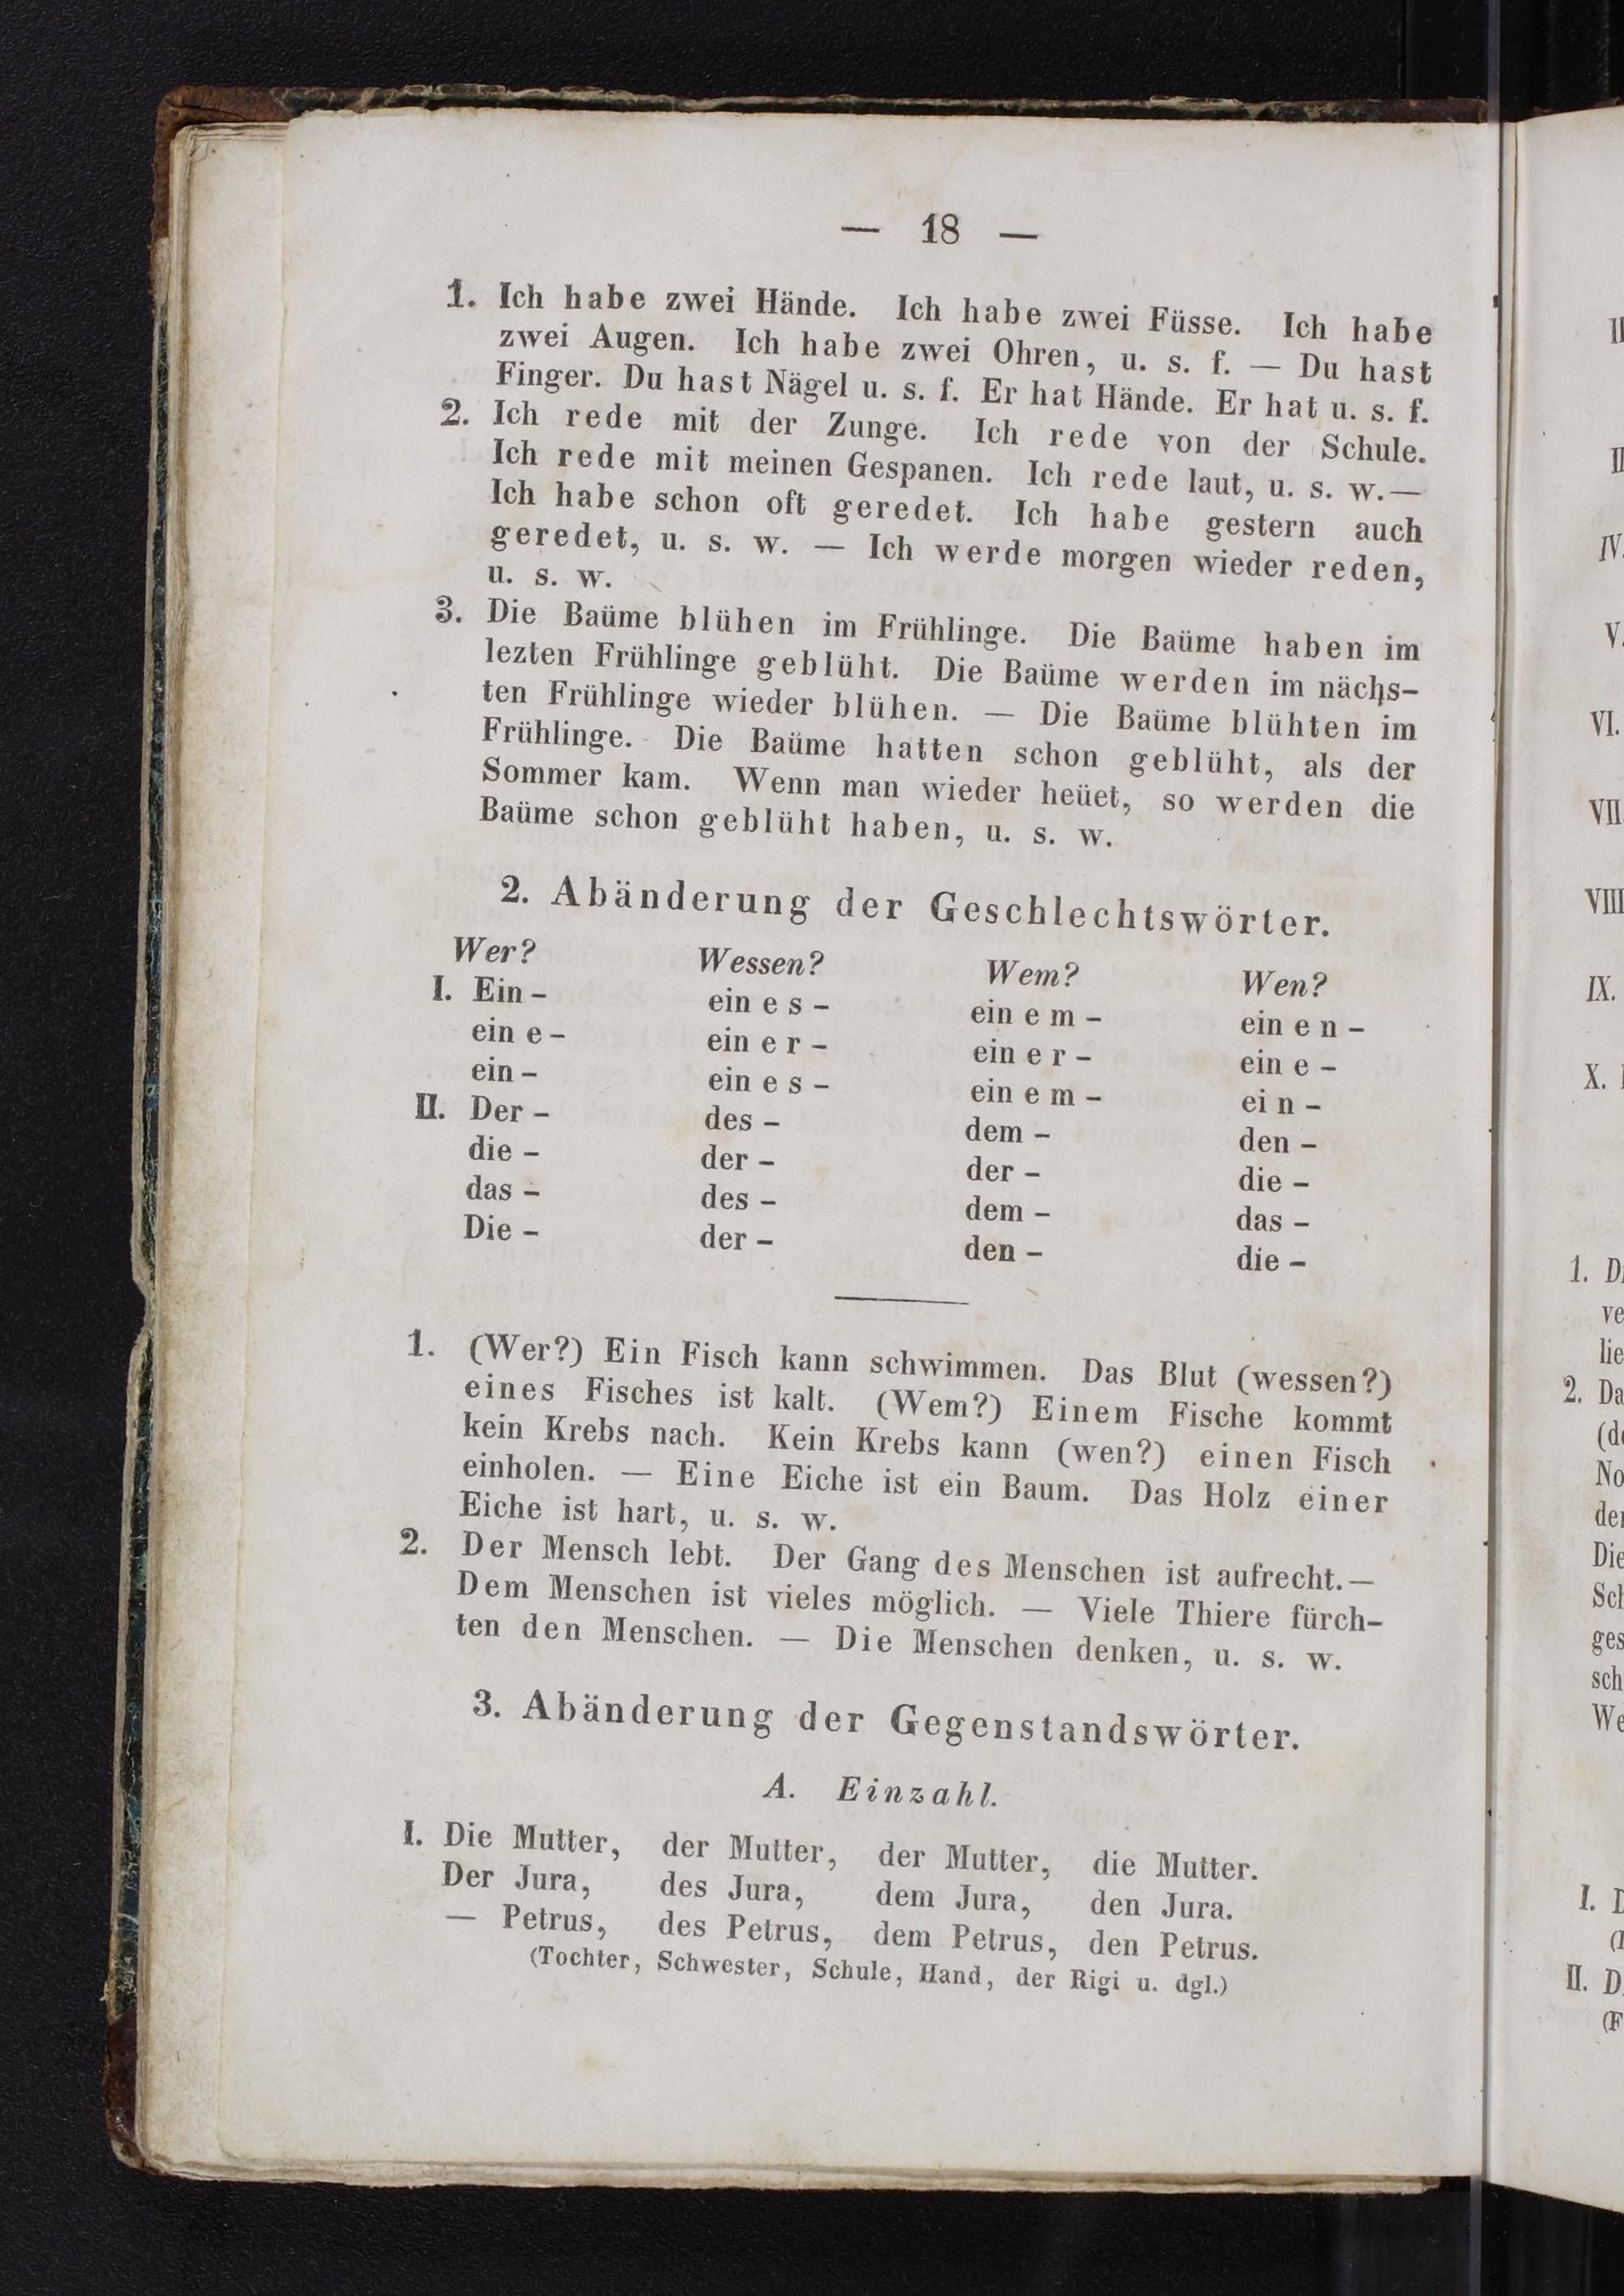 — 18 —
1. Ich habe zwei Hände. Ich habe zwei Füsse. Ich habe
zwei Augen. Ich habe zwei Ohren, u. s. f. — Du hast
Finger. Du hast Nägel u. s. f. Er hat Hände. Er hat u. s. f.
2. Ich rede mit der Zunge. Ich rede von der Schule.
Ich rede mit meinen Gespanen. Ich rede laut, u. s. w. —
Ich habe schon oft geredet. Ich habe gestern auch
geredet, u. s. w. — Ich werde morgen wieder reden,
u. s. w.
3. Die Baüme blühen im Frühlinge. Die Baüme haben im
lezten Frühlinge geblüht. Die Baüme werden im nächs-
ten Frühlinge wieder blühen. — Die Baüme blühten im
Frühlinge. Die Baüme hatten schon geblüht, als der
Sommer kam. Wenn man wieder heüet, so werden die
Baüme schon geblüht haben, u. s. w.
2. Abänderung der Geschlechtswörter.
Wer? Wessen? Wem? Wen?
I. Ein - ein e s - ein e m - ein e n -
ein e - ein e r - ein e r - ein e -
ein - ein e s - ein e m - ei n -
II. Der - des - dem - den -
die - der - der - die -
das - des - dem - das -
Die - der - den - die -
1. (Wer?) Ein Fisch kann schwimmen. Das Blut (wessen?)
eines Fisches ist kalt. (Wem?) Einem Fische kommt
kein Krebs nach. Kein Krebs kann (wen?) einen Fisch
einholen. — Eine Eiche ist ein Baum. Das Holz einer
Eiche ist hart, u. s. w.
2. Der Mensch lebt. Der Gang des Menschen ist aufrecht. —
Dem Menschen ist vieles möglich. — Viele Thiere fürch-
ten den Menschen. — Die Menschen denken, u. s. w.
3. Abänderung der Gegenstandswörter.
A. Einzahl.
I. Die Mutter, der Mutter, der Mutter, die Mutter.
Der Jura, des Jura, dem Jura, den Jura.
— Petrus, des Petrus, dem Petrus, den Petrus.
(Tochter, Schwester, Schule, Hand, der Rigi u. dgl.)
IV.
V.
VI.
VII
VIII
IX.
X.
1.
2.
I.
II.